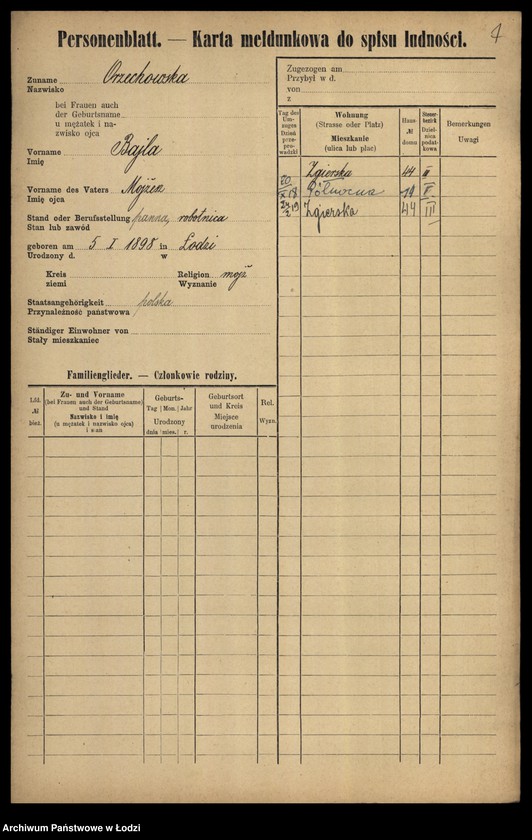 4
Personenblatt. — Karta meldunkowa do spisu ludności.
Zuname Orzechowska
Nazwisko
bei Frauen auch
der Geburtsname
u mężatek i na-
zwisko ojca
Vorname Bajla
Imię
Vorname des Vaters Mojżesz
Imię ojca
Stand oder Berufsstellung panna, robotnica
Stan lub zawód
geboren am 5 I 1898 in Łodzi
Urodzony d. w
Kreis
ziemi
Religion mojż
Wyznanie
Staatsangehörigkeit polska
Przynależność państwowa
Ständiger Einwohner von
Stały mieszkaniec
Zugezogen am
Przybył w d.
von
z
Tag des Um-zuges Dzień prze-prowadzki
Wohnung (Strasse oder Platz) Mieszkanie (ulica lub plac)
Haus-№ domu
Steuer-bezirk Dziel-nica podat-kowa
Bemerkungen Uwagi
Zgierska 44 II
20/X 18 Północna 19 II
24/2 19 Zgierska 44 III
Familienglieder. — Członkowie rodziny.
Lfd. № bież.
Zu- und Vorname (bei Frauen auch der Geburtsname) und Stand Nazwisko i imię (u mężatek i nazwisko ojca) i stan
Geburts- Tag Mon. Jahr Urodzony dnia mies. r.
Geburtsort und Kreis Miejsce urodzenia
Rel. Wyzn.
Archiwum Państwowe w Łodzi